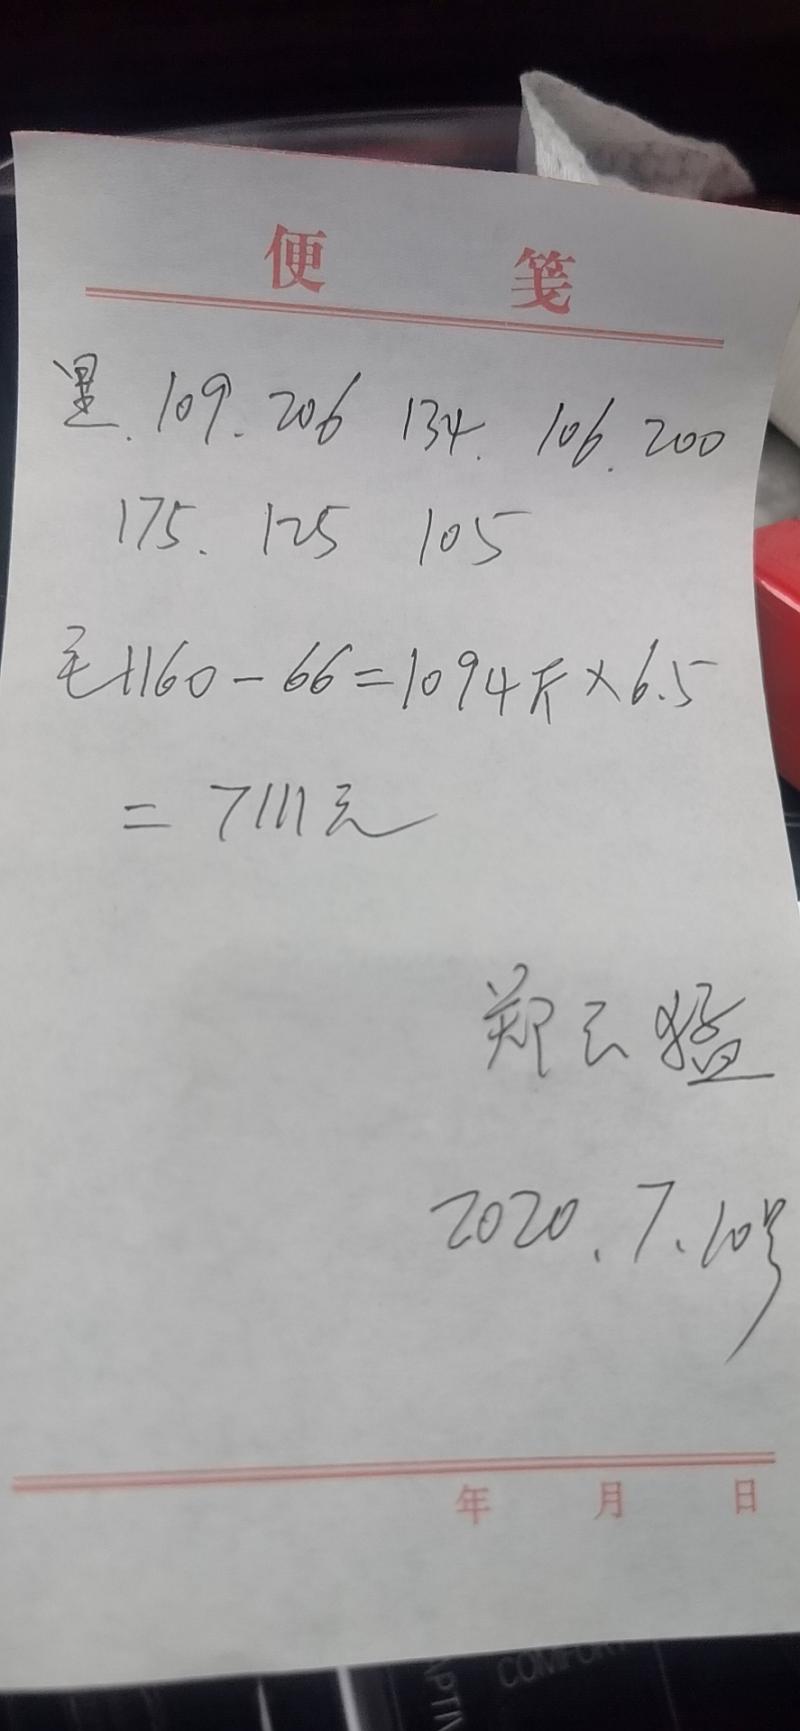 便 笺
黑. 109. 206 134. 106. 200
175. 125 105
毛1160-66=1094斤×6.5
=7111元
郑云猛
2020.7.10号
年 月 日
COMFOR